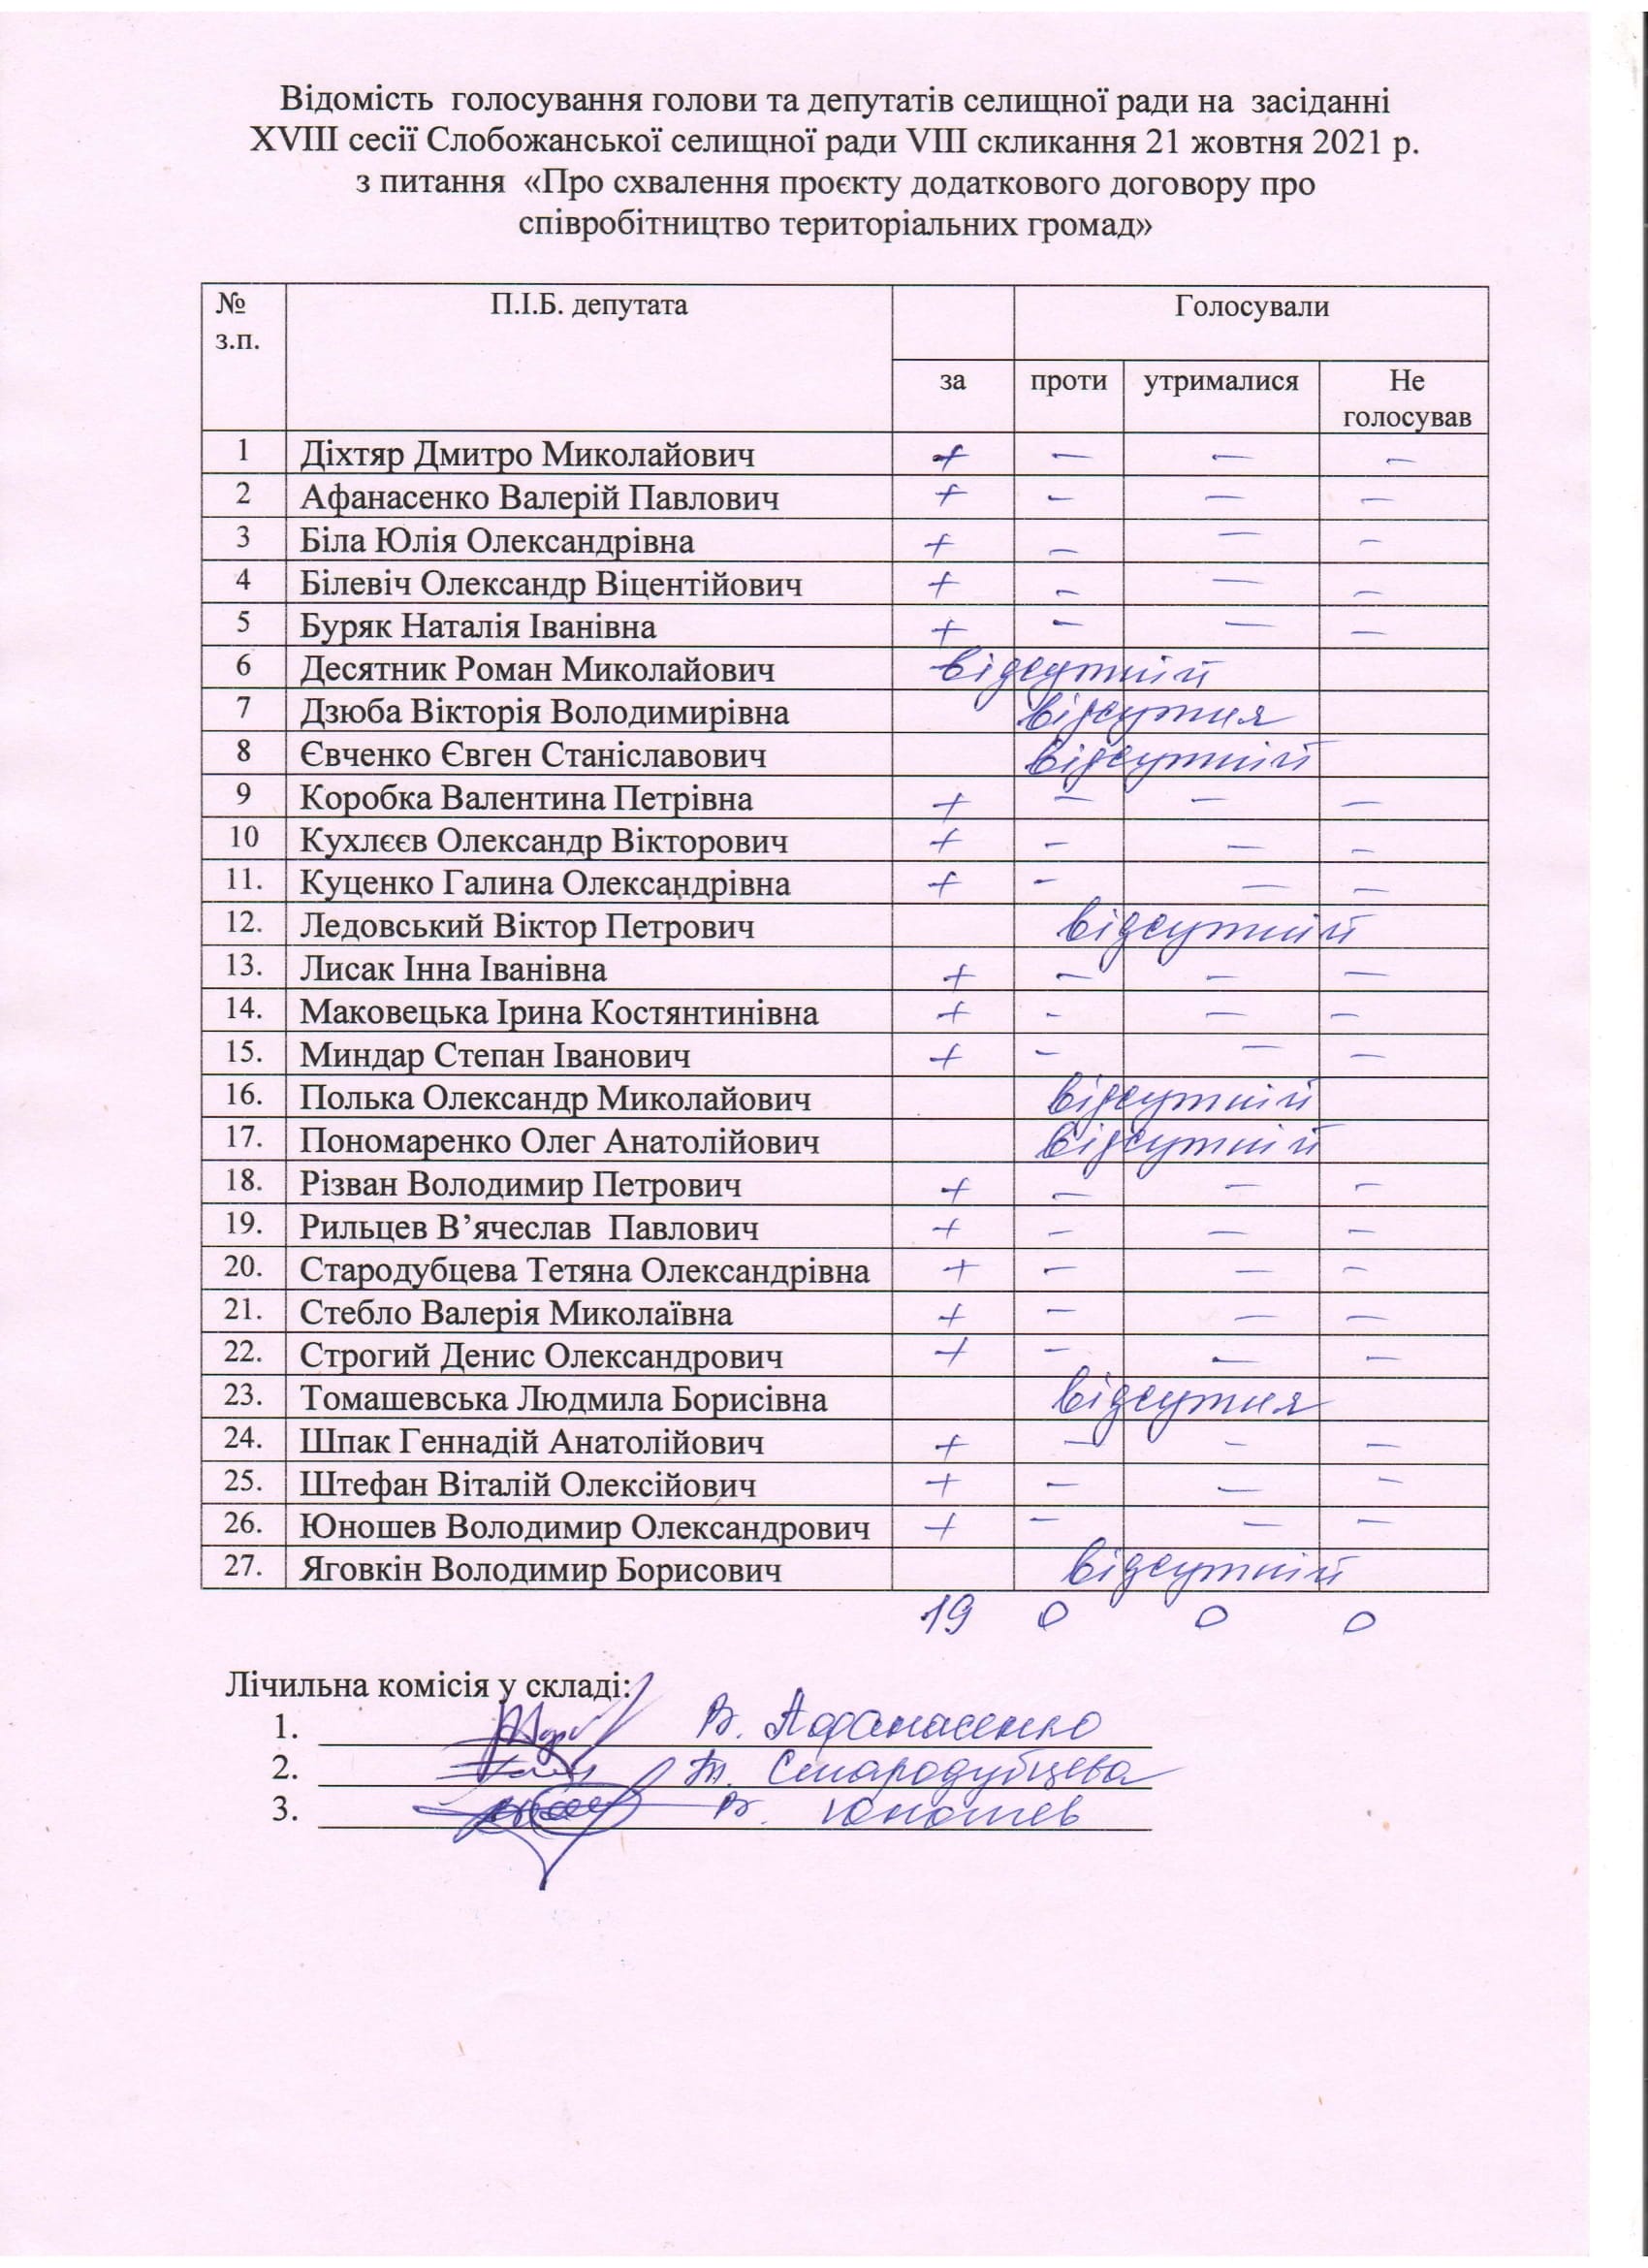 Відомість голосування голови та депутатів селищної ради на засіданні
XVIII сесії Слобожанської селищної ради VIII скликання 21 жовтня 2021 р.
з питання «Про схвалення проєкту додаткового договору про
співробітництво територіальних громад»
№ з.п. П.І.Б. депутата Голосували
за проти утрималися Не голосував
1 Діхтяр Дмитро Миколайович + – – –
2 Афанасенко Валерій Павлович + – – –
3 Біла Юлія Олександрівна + – – –
4 Білевіч Олександр Віцентійович + – – –
5 Буряк Наталія Іванівна + – – –
6 Десятник Роман Миколайович відсутній
7 Дзюба Вікторія Володимирівна відсутня
8 Євченко Євген Станіславович відсутній
9 Коробка Валентина Петрівна + – – –
10 Кухлєєв Олександр Вікторович + – – –
11. Куценко Галина Олександрівна + – – –
12. Ледовський Віктор Петрович відсутній
13. Лисак Інна Іванівна + – – –
14. Маковецька Ірина Костянтинівна + – – –
15. Миндар Степан Іванович + – – –
16. Полька Олександр Миколайович відсутній
17. Пономаренко Олег Анатолійович відсутній
18. Різван Володимир Петрович + – – –
19. Рильцев В’ячеслав Павлович + – – –
20. Стародубцева Тетяна Олександрівна + – – –
21. Стебло Валерія Миколаївна + – – –
22. Строгий Денис Олександрович + – – –
23. Томашевська Людмила Борисівна відсутня
24. Шпак Геннадій Анатолійович + – – –
25. Штефан Віталій Олексійович + – – –
26. Юношев Володимир Олександрович + – – –
27. Яговкін Володимир Борисович відсутній
19 0 0 0
Лічильна комісія у складі:
1. В. Афанасенко
2. Т. Стародубцева
3. В. Юношев